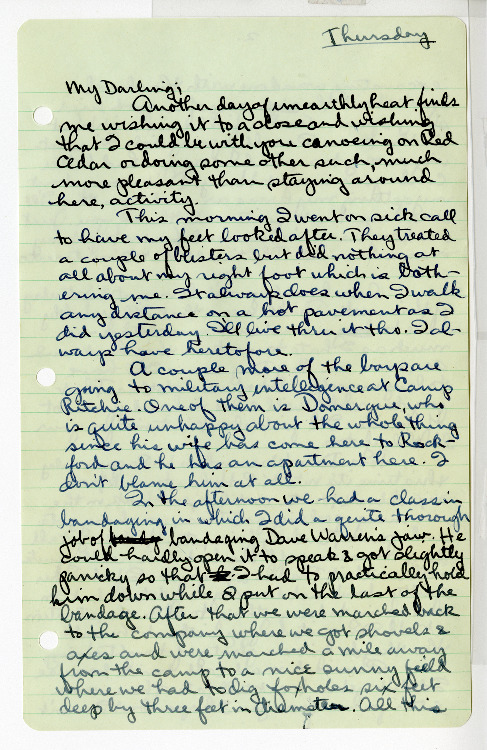 Thursday
My Darling;
Another day of unearthly heat finds
me wishing it to a close and wishing
that I could be with you canoeing on Red
Cedar or doing some other such, much
more pleasant than staying around
here, activity.
This morning I went on sick call
to have my feet looked after. They treated
a couple of blisters but did nothing at
all about my right foot which is both-
ering me. It always does when I walk
any distance on a hot pavement as I
did yesterday. I'll live thru it tho. I al-
ways have heretofore.
A couple more of the boys are
going to military intelligence at Camp
Ritchie. One of them is Domergue, who
is quite unhappy about the whole thing
since his wife has come here to Rock-
ford and he has an apartment here. I
don't blame him at all.
In the afternoon we had a class in
bandaging in which I did a quite thorough
job of bandaging Dave Warren's jaw. He
could hardly open it to speak & got slightly
panicky so that I had to practically hold
him down while I put on the last of the
bandage. After that we were marched back
to the company where we got shovels &
axes and were marched a mile away
from the camp to a nice sunny field
where we had to dig foxholes six feet
deep by three feet in diameter. All this